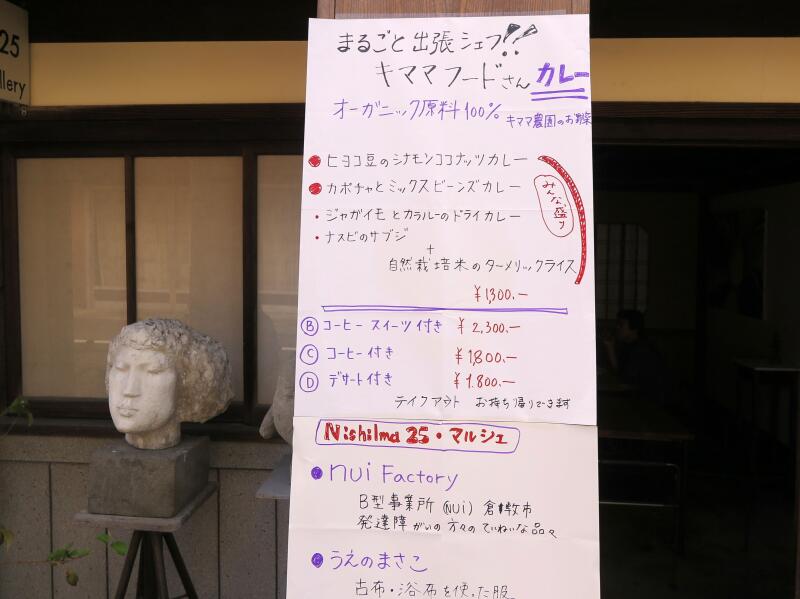 25
llery
まるごと出張シェフ!!
キママフードさん カレー
オーガニック原料100%
キママ農園のお野菜
• ヒヨコ豆のシナモンココナッツカレー
• カボチャとミックスビーンズカレー
• ジャガイモとカラルーのドライカレー
• ナスビのサブジ
みんな盛り
+
自然栽培米のターメリックライス
¥1300.-
Ⓑ コーヒースイーツ付き ¥2,300.-
Ⓒ コーヒー付き ¥1,800.-
Ⓓ デザート付き ¥1.800.-
テイクアウト お持ち帰りできます
NishiIma 25・マルシェ
• nui Factory
B型事業所(NUi)倉敷市
発達障がいの方々のていねいな品々
• うえのまさこ
古布・浴布を使った服